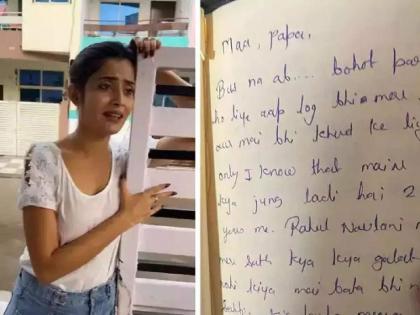 Maa, Papa,
Bas na ab... bohot par
ho liye aap log bhi mere
aur mai bhi khud ke li
only I know that maine
kya jung ladi hai 2
years me. Rahul Navlani n
mere sath kya kya galat
nahi kiya mai bata bhi n